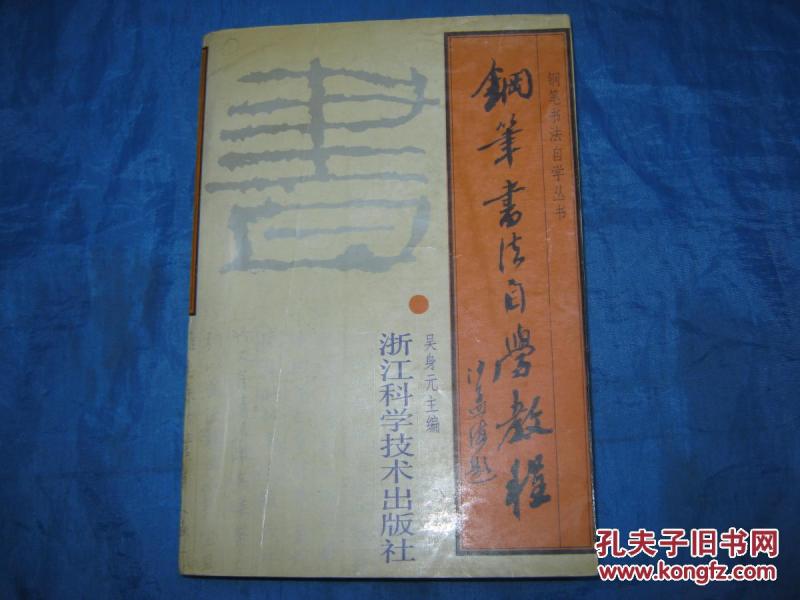 钢笔书法自学丛书
鋼筆書法自學教程
沙孟海题
書
吴身元主编
浙江科学技术出版社
孔夫子旧书网
www.kongfz.com